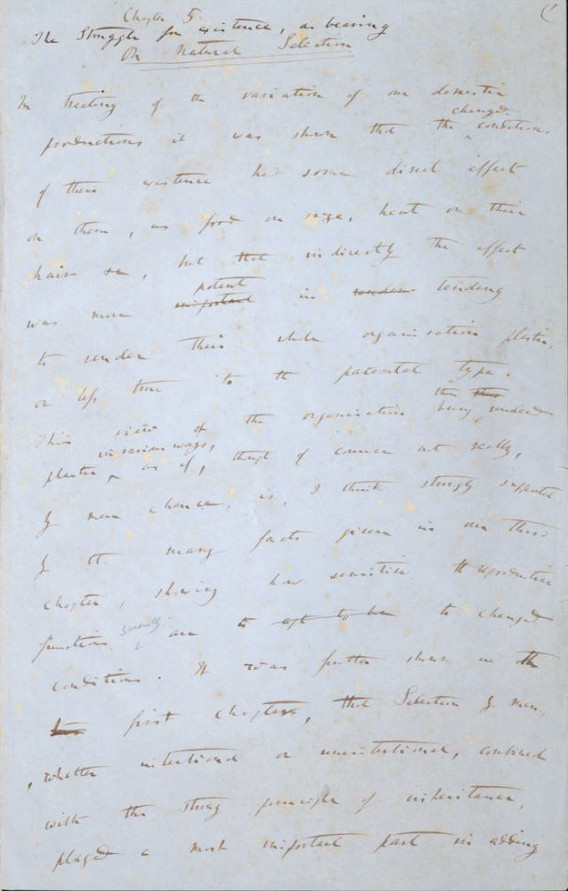 Chapter 5.
The Struggle for existence, as bearing
On Natural Selection
In treating of the variation of our domestic
changed
productions it was shown that the conditions
of their existence had some direct effect
on them, as food on size, heat on their
hair, but that indirectly the effect
potent
was more important in tending
to render their whole organisation plastic,
or less true to the parental type.
This view of the organisation being rendered
in various ways,
plastic, as if, though of course not really,
by mere chance, is, I think strongly supported
by the many facts given in our third
chapter, showing how sensitive the reproductive
functions generally are to apt to be to changed
conditions. It was further shown in the
first chapter, that Selection by man,
whether intentional or unintentional, combined
with the strong principle of inheritance,
played a most important part in adding